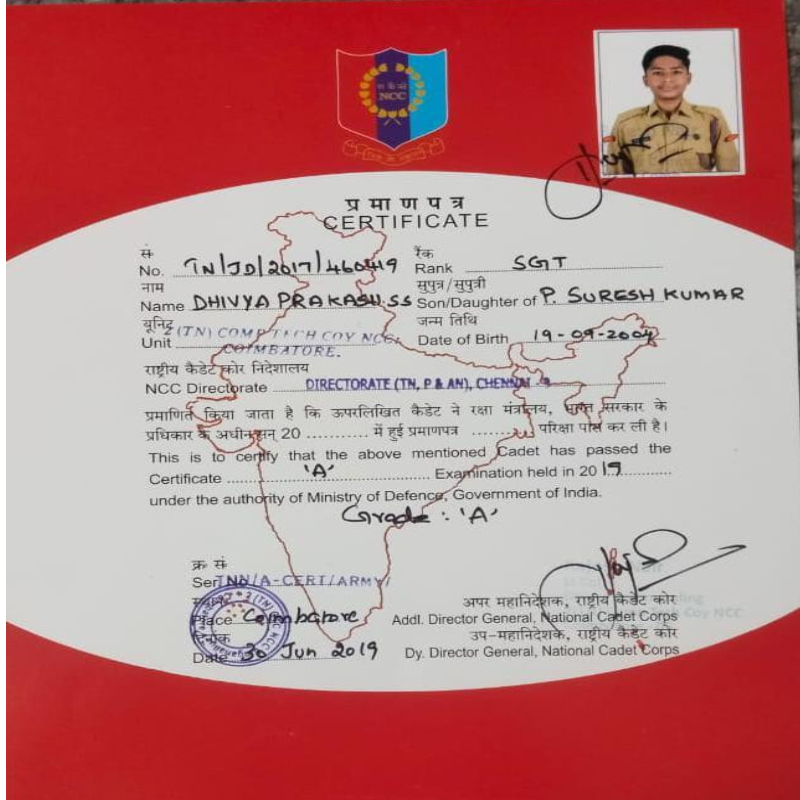 NCC
प्रमाणपत्र
CERTIFICATE
सं
No. TN/JD/2017/460419
रैंक
Rank SGT
नाम
Name DHIVYA PRAKASH.SS
सुपुत्र/सुपुत्री
Son/Daughter of P. SURESH KUMAR
यूनिट
Unit (TN) COMP TECH COY NCC,
COIMBATORE.
जन्म तिथि
Date of Birth 19-09-2004
राष्ट्रीय कैडेट कोर निदेशालय
NCC Directorate DIRECTORATE (TN, P & AN), CHENNAI - 9
प्रमाणित किया जाता है कि ऊपरलिखित कैडेट ने रक्षा मंत्रालय, भारत सरकार के
प्रधिकार के अधीन सन् 20 ........... में हुई प्रमाणपत्र ........... परिक्षा पास कर ली है।
This is to certify that the above mentioned Cadet has passed the
Certificate 'A' Examination held in 2019
under the authority of Ministry of Defence, Government of India.
Grade : 'A'
क्र सं
Ser No TNN/A-CERT/ARMY/
स्थान
Place Coimbatore
दिनांक
Date 30 Jun 2019
अपर महानिदेशक, राष्ट्रीय कैडेट कोर
Addl. Director General, National Cadet Corps
उप-महानिदेशक, राष्ट्रीय कैडेट कोर
Dy. Director General, National Cadet Corps